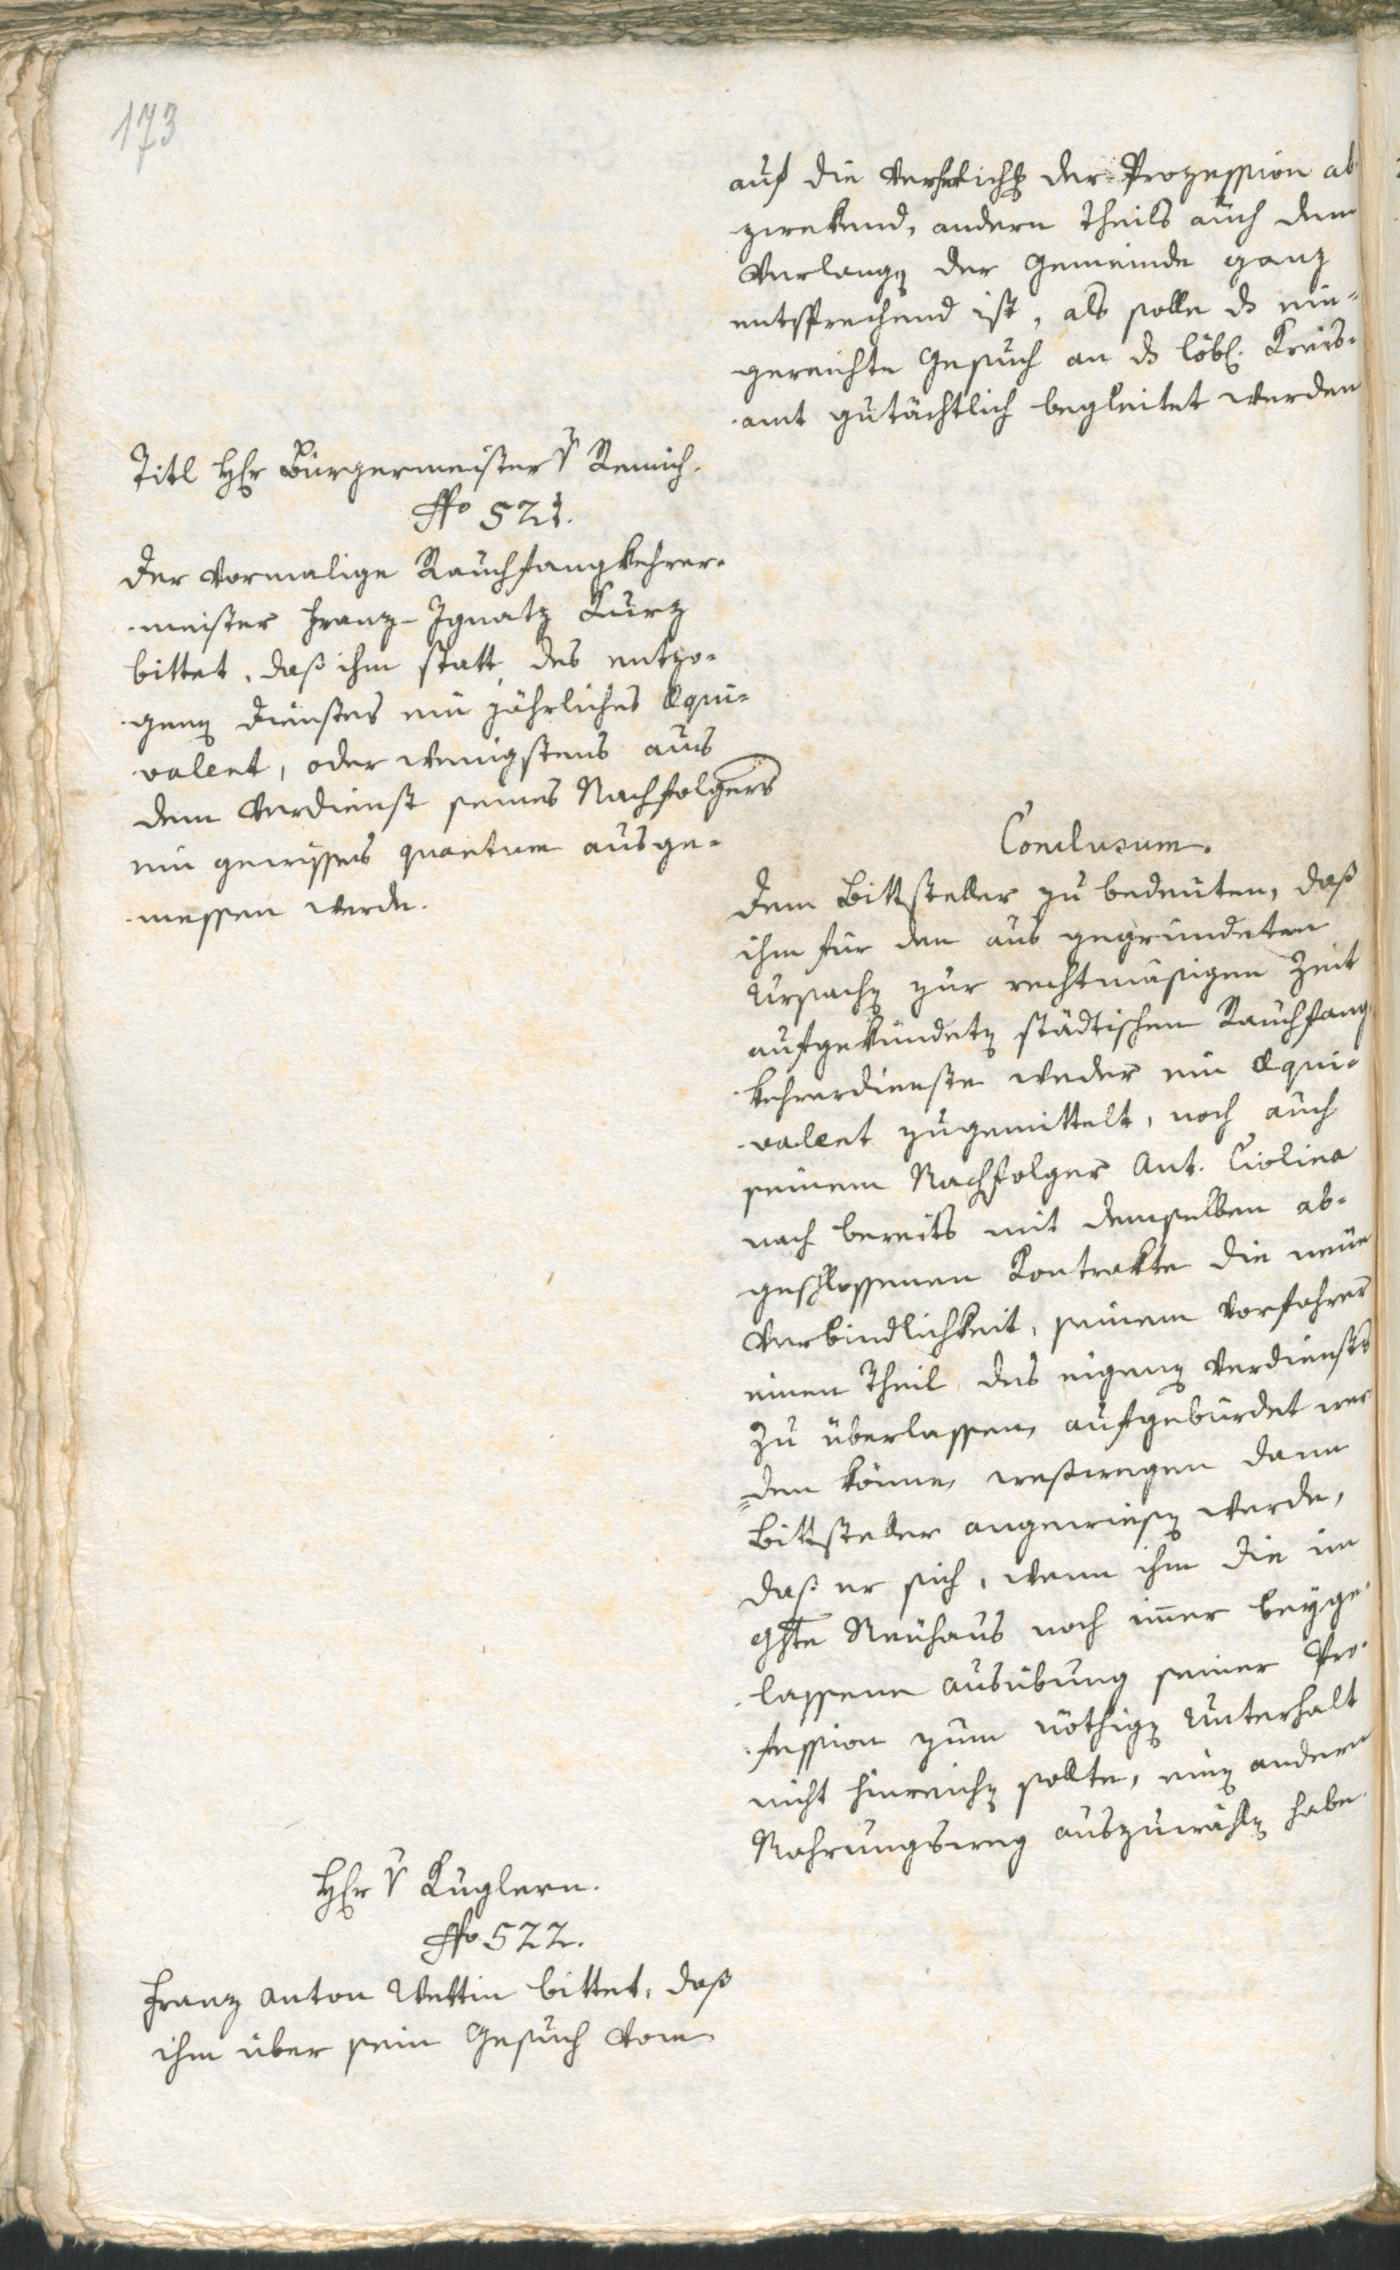 173
auf die Verherrlichg der Prozession ab
zwekend, andern Theils auch dem
Verlangen der Gemeinde ganz
entsprechend ist, als solle ds ein-
gereichte Gesuch an ds löbl. Kreis-
amt gutächtlich begleitet werden
Titl Hhr Bürgermeister v Remich.
No 521.
Der vormalige Rauchfangkehrer-
meister Franz-Ignatz Kurz
bittet, daß ihm statt des entzo-
genen Dienstes ein jährliches Equi-
valent, oder wenigstens aus
dem Verdienst seines Nachfolgers
ein gewisses quantum ausge-
messen werde.
Conclusum.
Dem Bittsteller zu bedeuten, daß
ihm für den aus gegründeten
Ursachen zur rechtmäsigen Zeit
aufgekündeten städtischen Rauchfang
kehrerdienste weder ein Equi-
valent zugemittelt, noch auch
seinem Nachfolger Ant. Ciolina
nach bereits mit demselben ab-
geschlossenen Kontrakte die neue
Verbindlichkeit, seinem Vorfahrer
einen Theil des eigenen Verdienstes
zu überlassen, aufgebürdet wer
=den könne, weßwegen dann
Bittsteller angewiesen werde,
daß er sich, wenn ihm die im
Ghte Neuhaus noch immer beyge-
lassene Ausübung seiner Pro-
fession zum nöthigen Unterhalt
nicht hinreichen sollte, einen andern
Nahrungsweg auszuwählen habe.
Hhr v Kuglern.
No 522.
Franz Anton Wettin bittet, daß
ihm über sein Gesuch vom